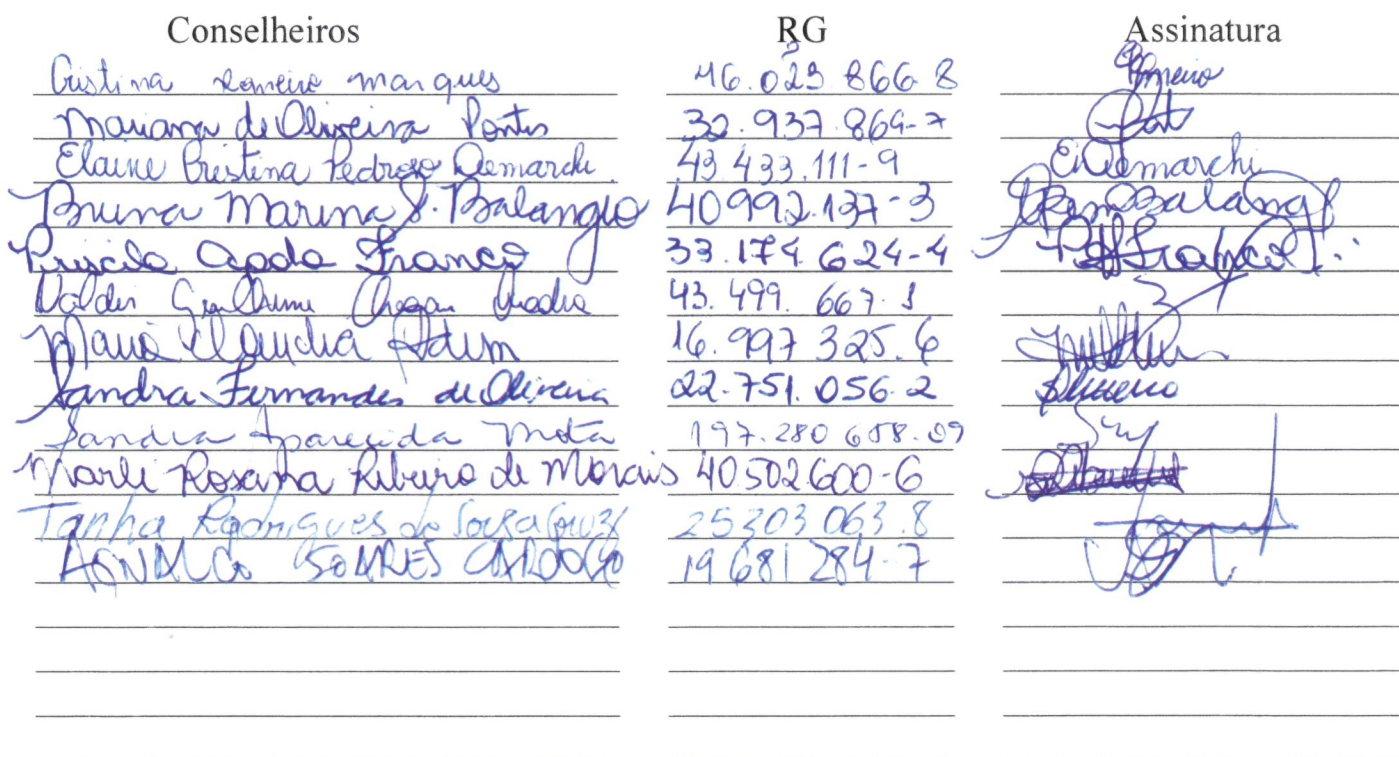 Conselheiros RG Assinatura
Cristina Romeiro marques 46.023.866-8 Romeiro
Mariana de Oliveira Pontes 32.937.869-7
Elaine Cristina Pedroso Demarchi 43.433.111-9 E.Demarchi
Bruna Marina S. Balangio 40992.137-3
Priscila Franco 33.174.624-4
Guilherme 43.499.667.1
Claudia 16.997 325.6
Sandra Fernandes de Oliveira 22.751.056.2
Sandra Aparecida Mota 197.280 658.09
Marli Rosana Ribeiro de Morais 40502600-6
Tanha Rodrigues de Souza Cruz 25303063.8
SOARES CARDOSO 19681284-7